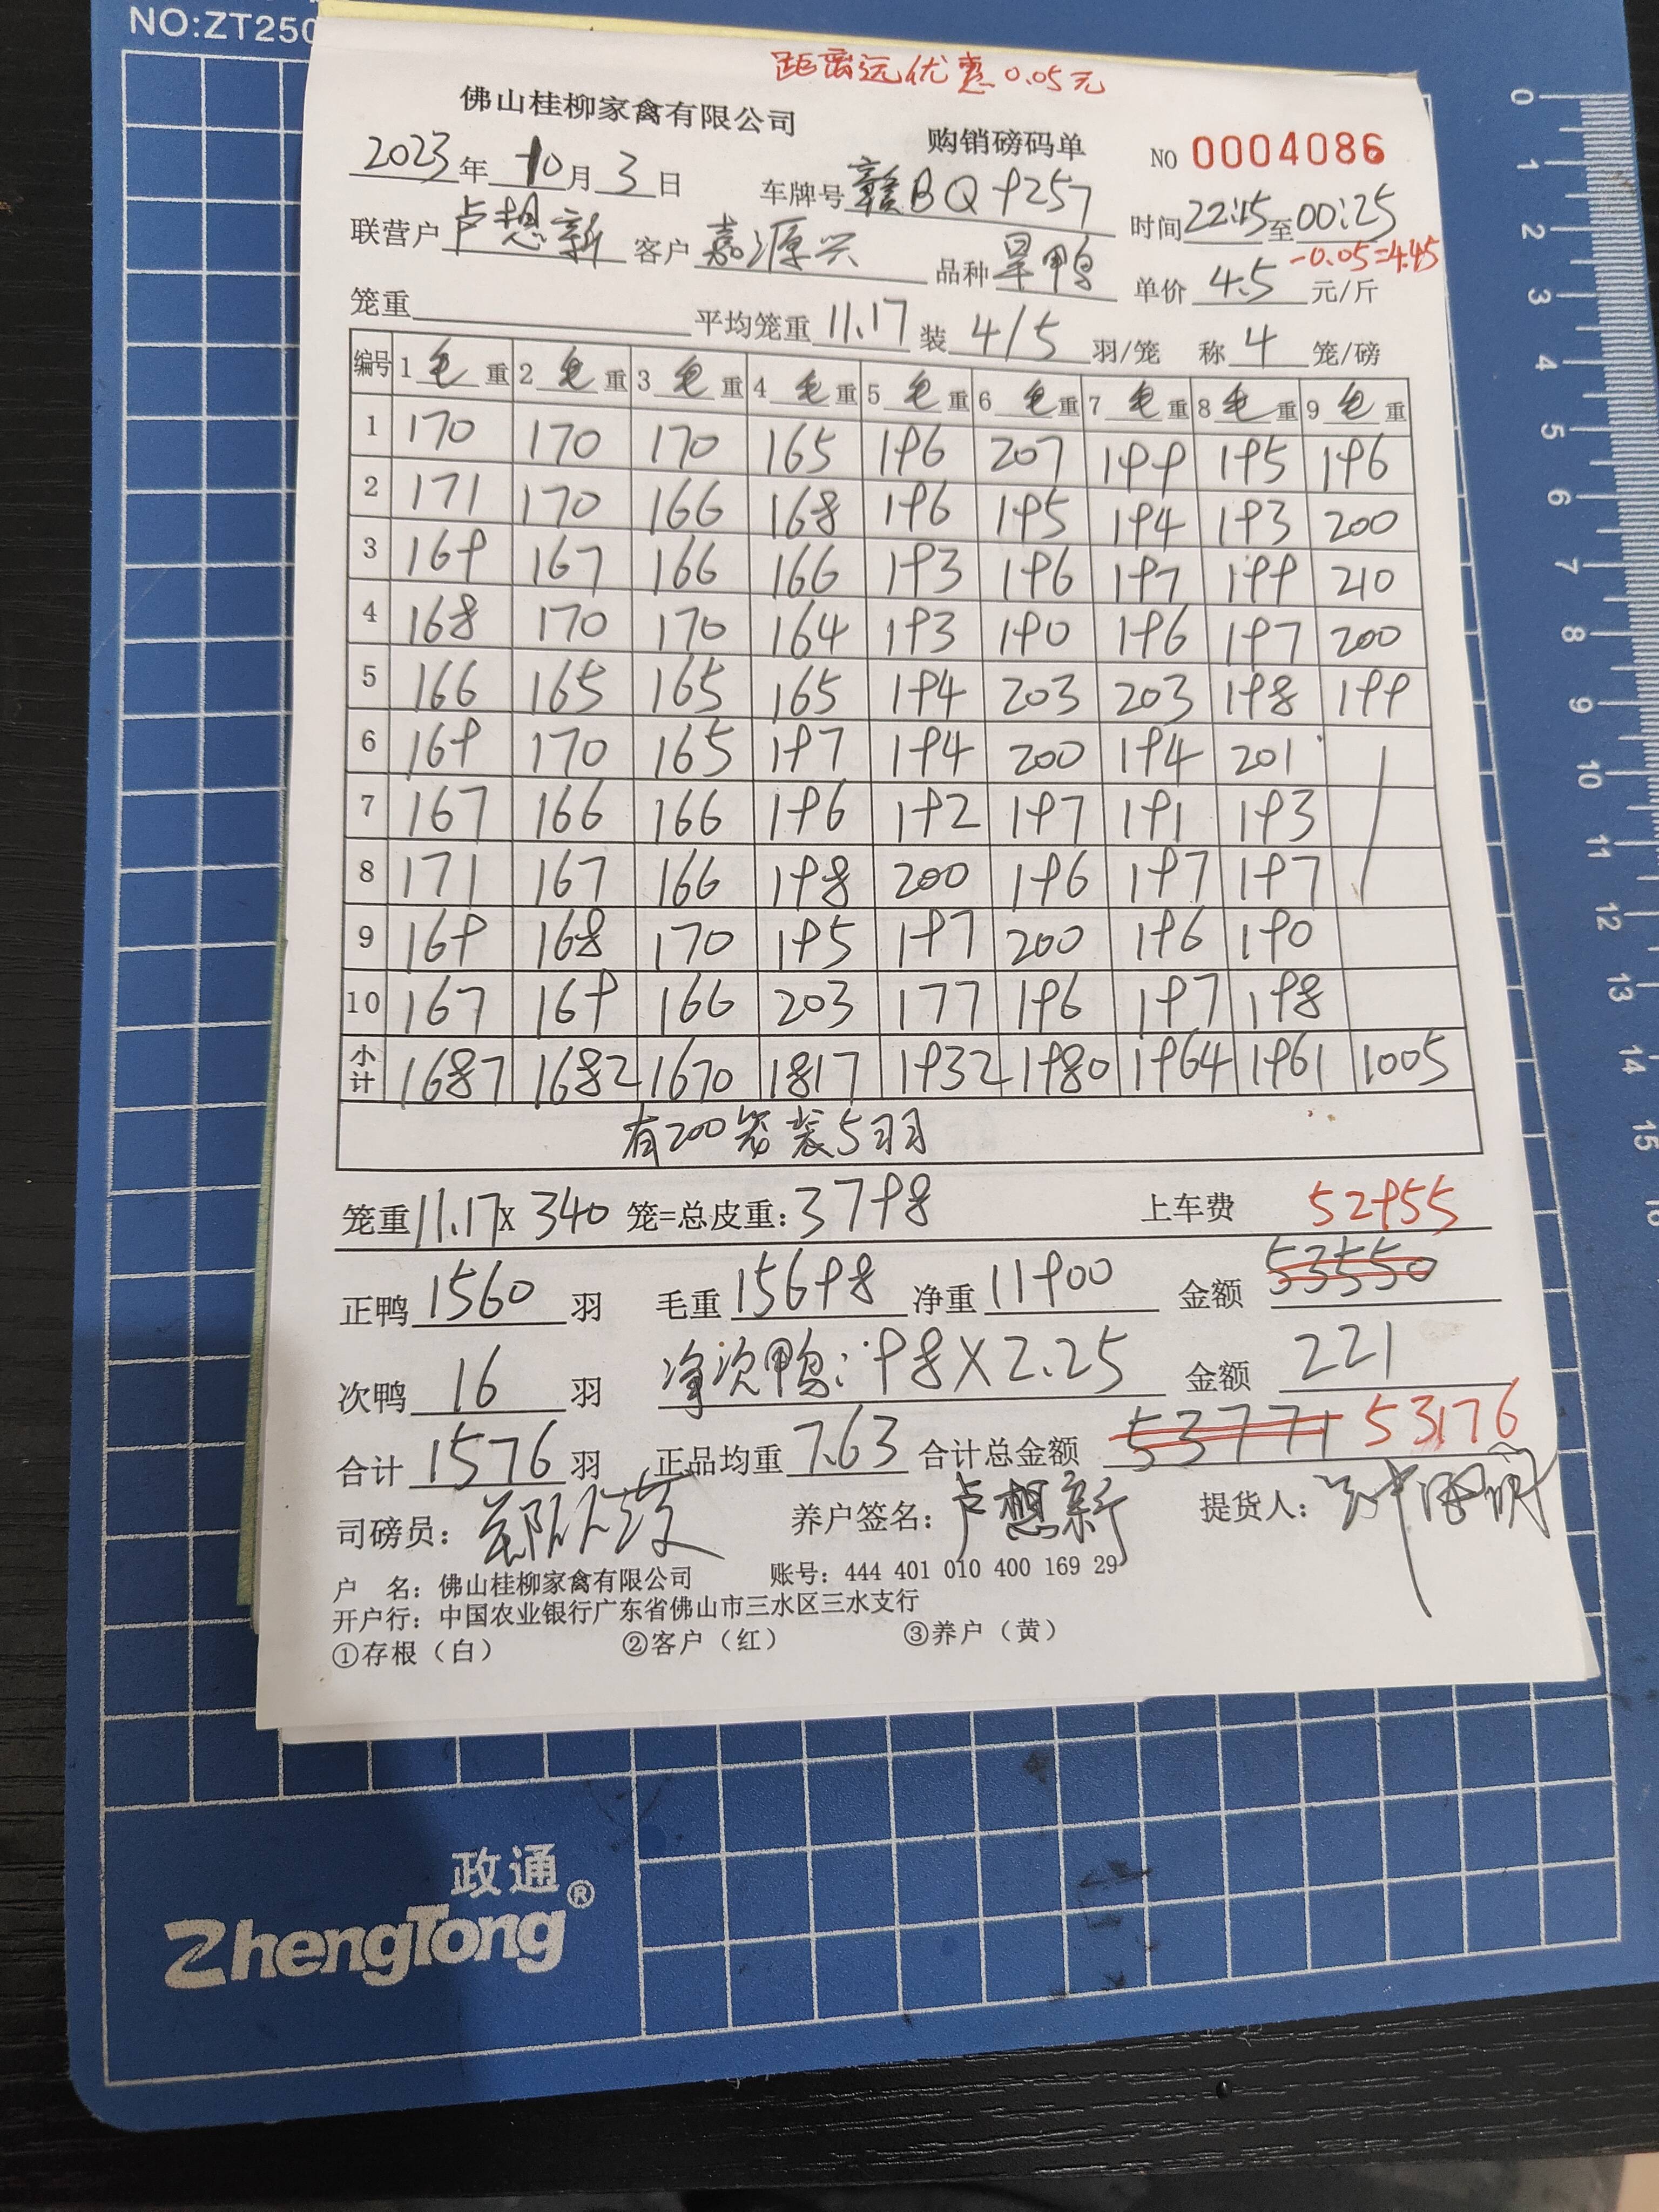 NO:ZT250
距离远优惠0.05元
佛山桂柳家禽有限公司 购销磅码单 NO 0004086
2023年10月3日 车牌号赣BQ9257 时间22:15至00:25
联营户卢想新 客户嘉源兴 品种旱鸭 单价4.5元/斤 -0.05=4.45
笼重 平均笼重11.17 装4/5羽/笼 称4笼/磅
编号 1毛重 2毛重 3毛重 4毛重 5毛重 6毛重 7毛重 8毛重 9毛重
1 170 170 170 165 196 207 199 195 196
2 171 170 166 168 196 195 194 193 200
3 169 167 166 166 193 196 197 199 210
4 168 170 170 164 193 190 196 197 200
5 166 165 165 165 194 203 203 198 199
6 169 170 165 197 194 200 194 201
7 167 166 166 196 192 197 191 193
8 171 167 166 198 200 196 197 197
9 169 168 170 195 197 200 196 190
10 167 169 166 203 177 196 197 198
小计 1687 1682 1670 1817 1932 1980 1964 1961 1005
有200笼装5羽
笼重11.17x340笼=总皮重:3798 上车费 52955
正鸭1560羽 毛重15698 净重11900 金额53550
次鸭16羽 净次鸭:98X2.25 金额221
合计1576羽 正品均重7.63 合计总金额53771 53176
司磅员: 养户签名:卢想新 提货人:
户 名:佛山桂柳家禽有限公司 账号:444 401 010 400 169 29
开户行:中国农业银行广东省佛山市三水区三水支行
①存根(白) ②客户(红) ③养户(黄)
0 1 2 3 4 5 6 7 8 9 10 11 12 13 14 15 16
政通®
ZhengTong